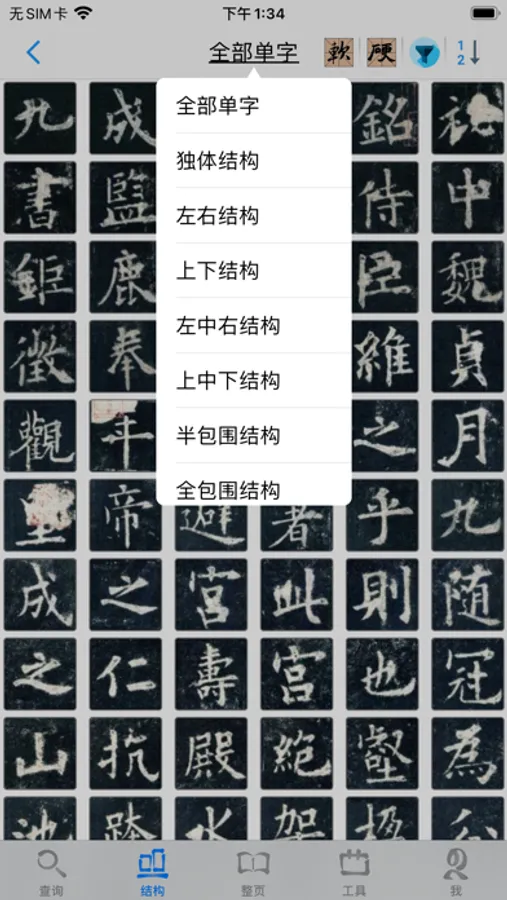 无SIM卡 下午1:34
全部单字 軟 硬 1 2
全部单字
独体结构
左右结构
上下结构
左中右结构
上中下结构
半包围结构
全包围结构
九 成 銘 祕
書 監 侍 中
鉅 鹿 臣 魏
徵 奉 維 貞
觀 之 月
帝 避 者 乎 九
成 之 宮 此 則 随
之 仁 壽 宮 也 冠
山 抗 殿 絕 壑 為
池 跨 水 架 楹 分
查询 结构 整页 工具 我